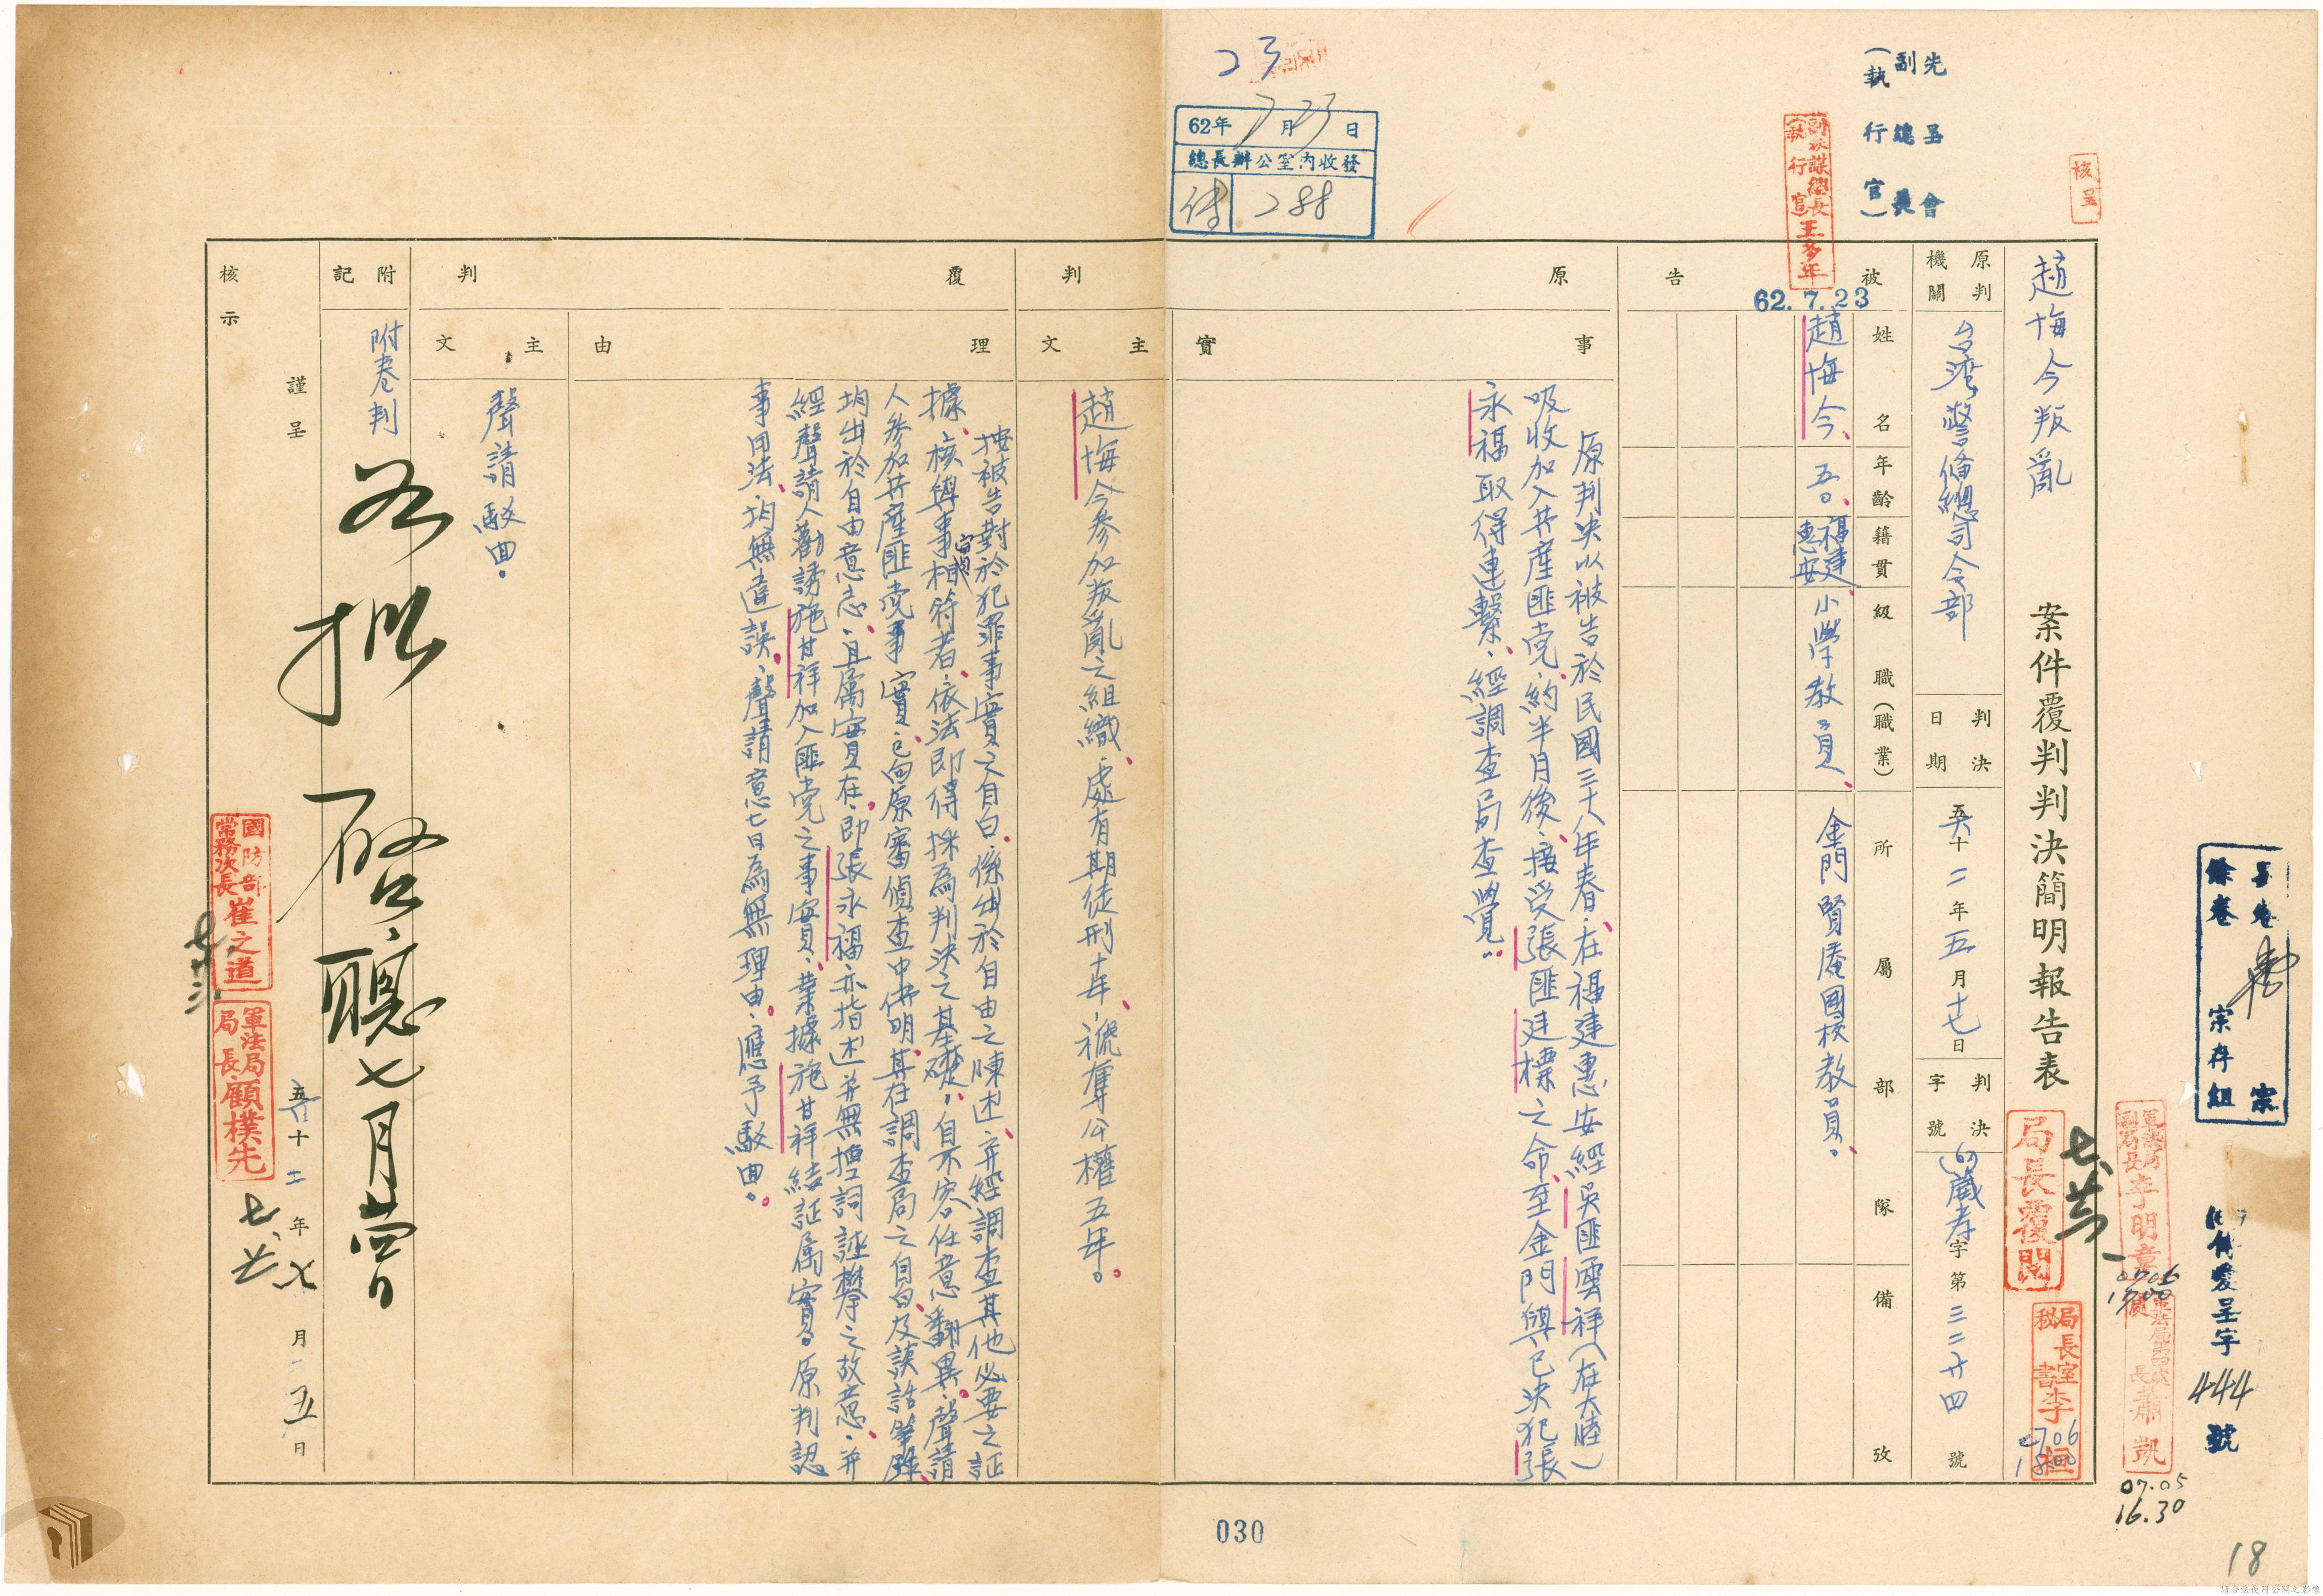 趙悔今叛亂
案件覆判判決簡明報告表
原判機關
台灣警備總司令部
判決日期
六十二年五月十七日
判決字號
(60)崴孝字第三二廿四號
被告
姓名
年齡
籍貫
級職(職業)
所屬部隊
備攷
趙悔今、
五0、
福建惠安、
小學教員、
金門賢庵國校教員。
原判
事實
原判決以被告於民國三十八年春、在福建惠安經吳匪雲祥(在大陸)
吸收加入共產匪党、約半月後、接受張匪建標之命、至金門與已決犯張
永福取得連繫、經調查局查覺。
主文
趙悔今參加叛亂之組織、處有期徒刑十年、褫奪公權五年。
覆判
理由
按被告對於犯罪事實之自白、係出於自由之陳述、并經調查其他必要之証
據、核與事實相符者、依法即得採為判決之基礎、自不容任意翻異、聲請
人參加共產匪党事實、已向原審偵查中供明、其在調查局之自白及談話筆錄、
均出於自由意志、且屬實在、即張永福亦指述并無捏詞誣攀之故意、并
經聲請人勸誘施甘祥加入匪党之事實、業據施甘祥結証屬實。原判認
事用法、均無違誤、聲請意旨為無理由、應予駁回。
主文
聲請駁回。
附記
附卷判
核示
謹呈
六十二年七月五日
如擬
七月
國防部常務次長崔之道
軍法局局長顧樸先
局長覆閱
局長室秘書李恒
0706
18.00
軍法局副局長李明章
0706
1700
軍法局第四處處長蕭凱
07.05
16.30
核呈
先呈會
副總長
(執行官)
副參謀總長(執行官)王多年
62.7.23
23
62年7月23日
總長辦公室內收發
288
餘卷宗存組
呈字444號
030
18
請合法使用公開之影像